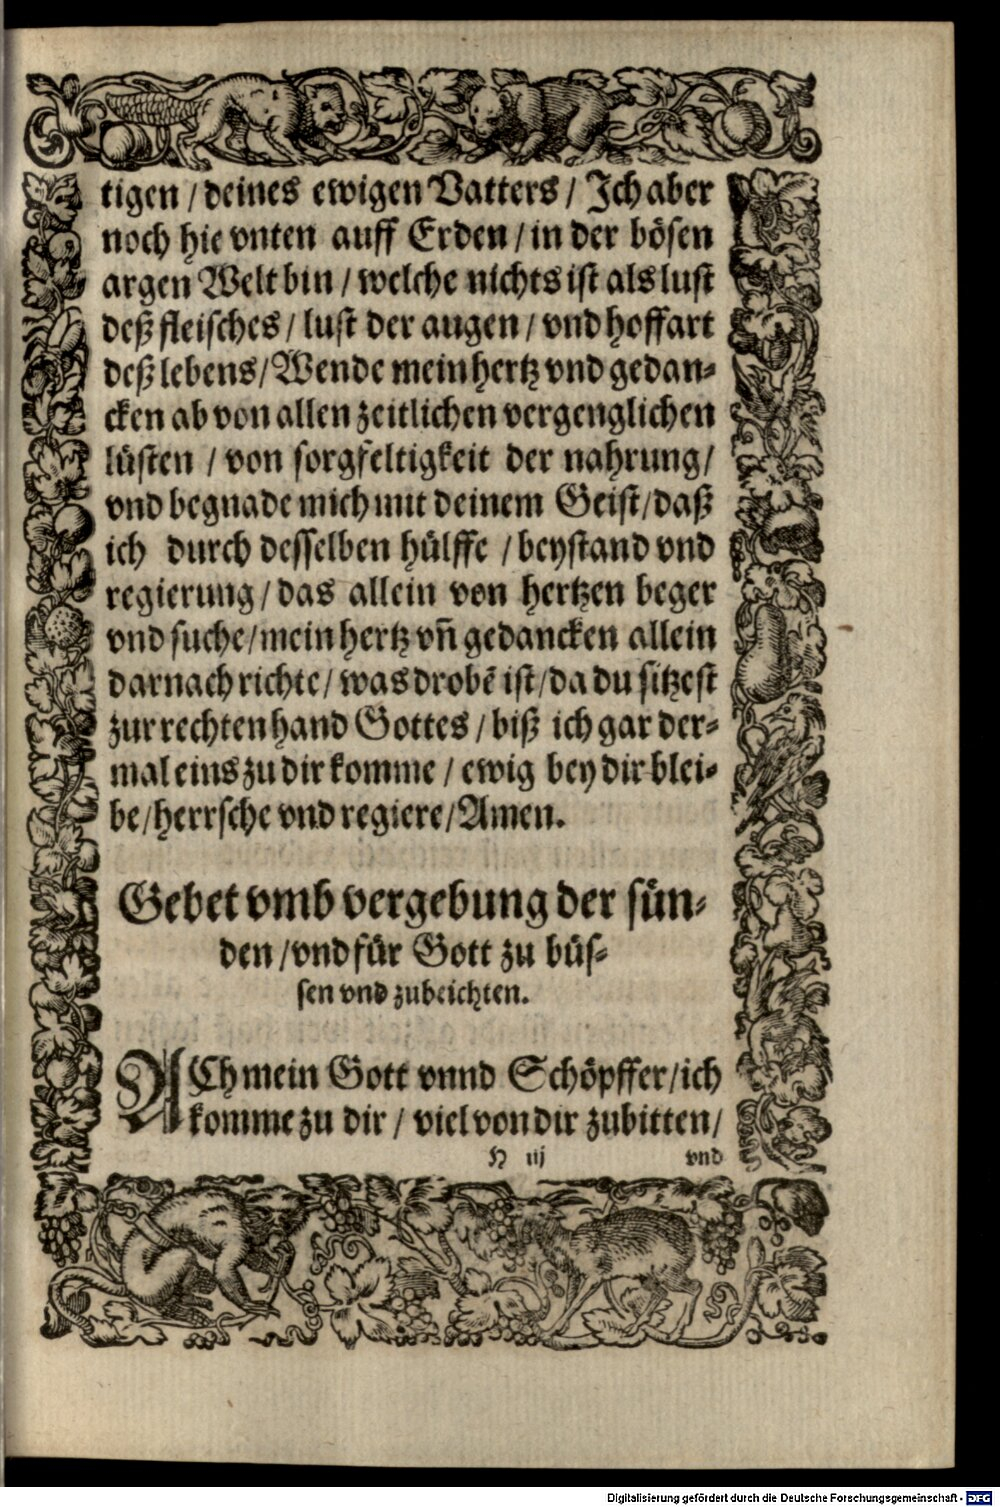 tigen / deines ewigen Vatters / Ich aber
noch hie vnten auff Erden / in der bösen
argen Welt bin / welche nichts ist als lust
deß fleisches / lust der augen / vnd hoffart
deß lebens / Wende mein hertz vnd gedan-
cken ab von allen zeitlichen vergenglichen
lüsten / von sorgfeltigkeit der nahrung /
vnd begnade mich mit deinem Geist / daß
ich durch desselben hülffe / beystand vnd
regierung / das allein von hertzen beger
vnd suche / mein hertz vñ gedancken allein
darnach richte / was drobẽ ist / da du sitzest
zur rechten hand Gottes / biß ich gar der-
mal eins zu dir komme / ewig bey dir blei-
be / herrsche vnd regiere / Amen.
Gebet vmb vergebung der sün-
den / vnd für Gott zu büs-
sen vnd zubeichten.
ACh mein Gott vnnd Schöpffer / ich
komme zu dir / viel von dir zubitten /
H iij vnd
Digitalisierung gefördert durch die Deutsche Forschungsgemeinschaft - DFG